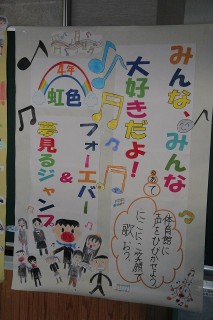 みんな、みんな
大好きだよ！
4年
虹色
フォーエバー
&
夢見るジャンプ
めあて
体育館に
声をひびかせよう
にこにこ笑顔で
歌おう。